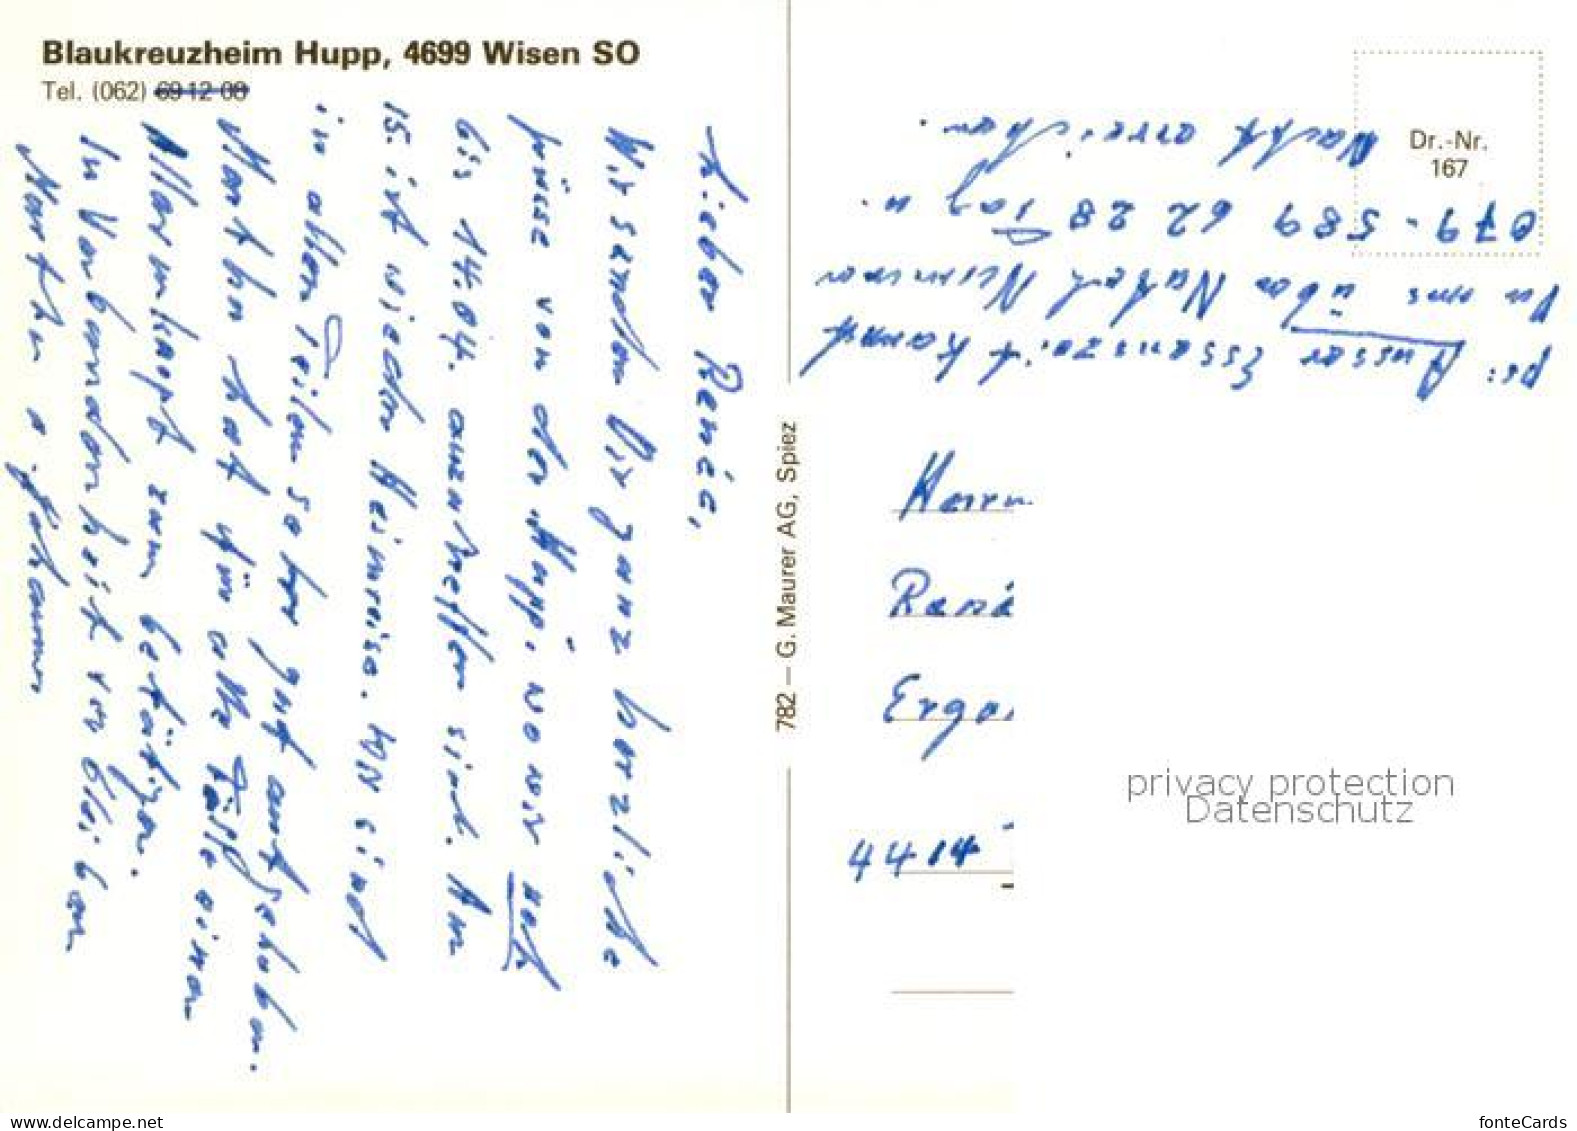 Blaukreuzheim Hupp, 4699 Wisen SO
Tel. (062) 69 12 08
Lieber René,
Wir senden Dir ganz herzliche
Grüsse von der Hupp, wo wir noch
bis 14.04. anzutreffen sind. Am
15. ist wieder Heimreise. Wir sind
in allen Teilen sehr gut aufgehoben.
Martha hat für alle Fälle einen
Alarmknopf zum betätigen.
In Verbundenheit verbleiben
Martha &
782 – G. Maurer AG, Spiez
Dr.-Nr.
167
ps: Ausser Essenszeit kannst
Du uns über Natel Nummer
079 - 589 62 28 Tag u.
Nacht erreichen.
Herrn
René
Ergo
4414
privacy protection
Datenschutz
www.delcampe.net
fonteCards